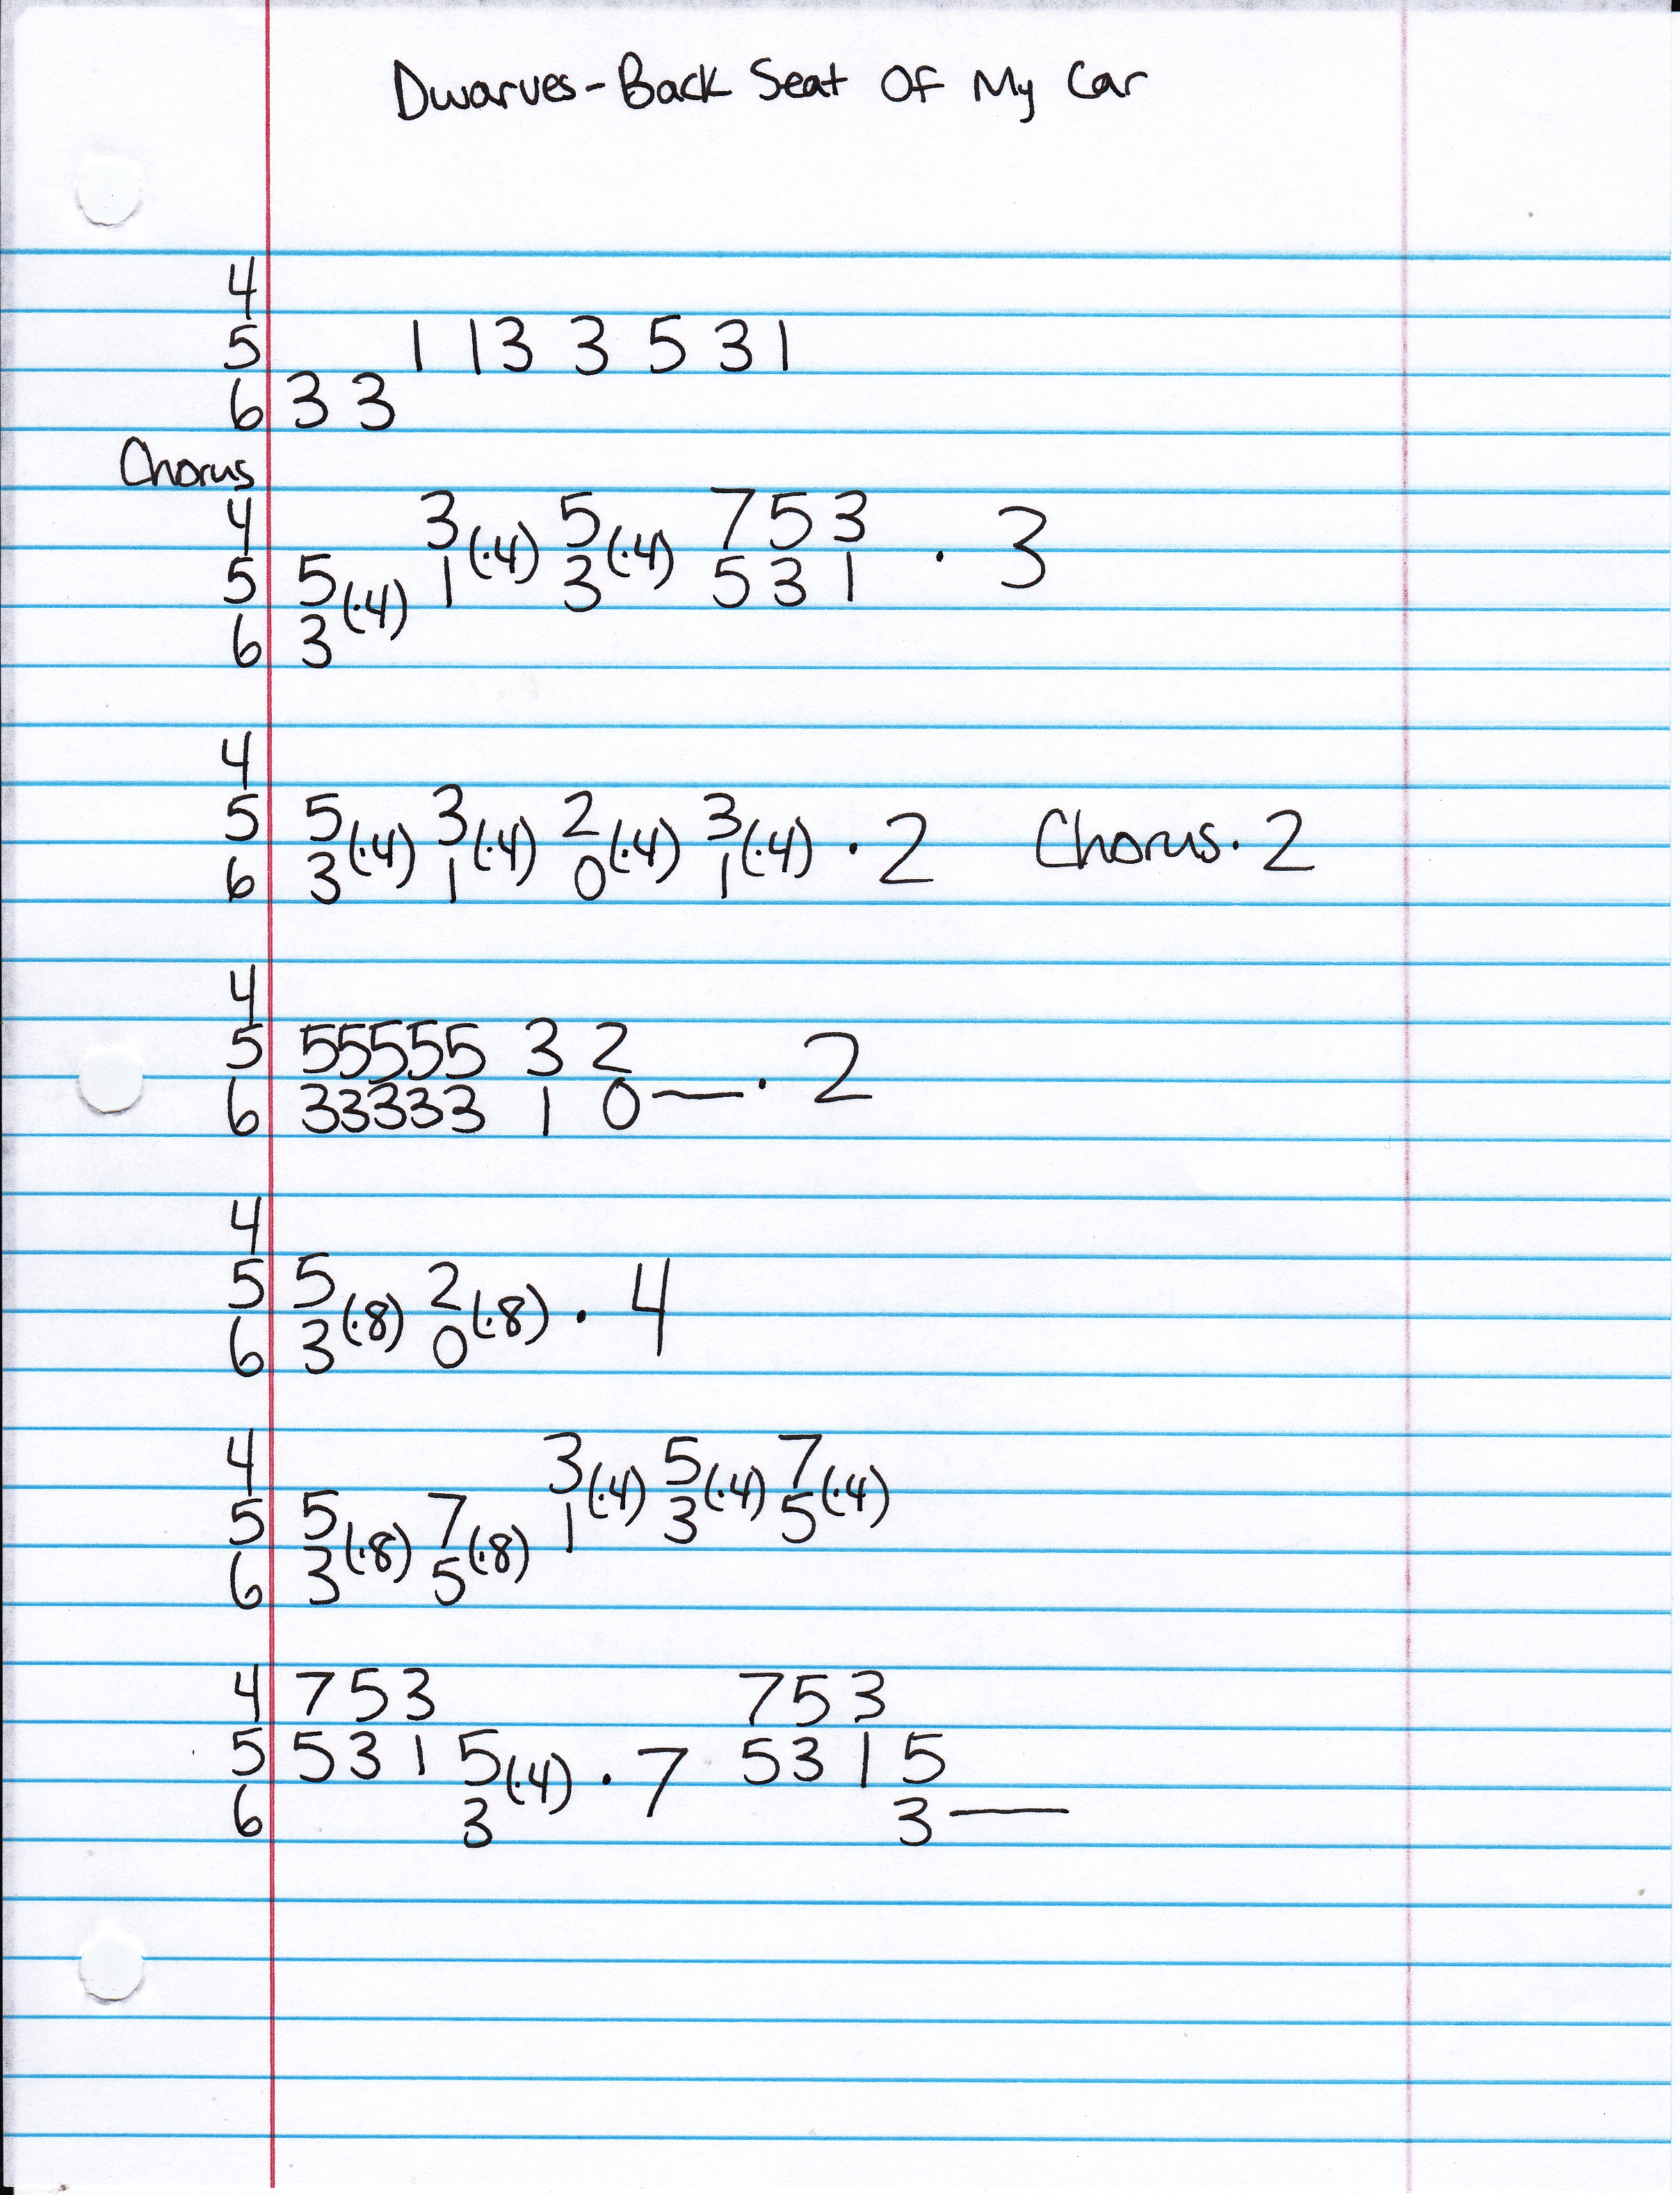 Dwarves - Back Seat Of My Car
4
5 1 13 3 5 3 1
6 3 3
Chorus
4 3(·4) 5(·4) 7 5 3 · 3
5 5(·4) 1 3 5 3 1
6 3
4
5 5(·4) 3(·4) 2(·4) 3(·4) · 2 Chorus · 2
6 3 1 0 1
4
5 55555 3 2
6 33333 1 0— · 2
4
5 5(·8) 2(·8) · 4
6 3 0
4 3(·4) 5(·4) 7(·4)
5 5(·8) 7(·8) 1 3 5
6 3 5
4 7 5 3 7 5 3
5 5 3 1 5(·4) · 7 5 3 1 5
6 3 3—